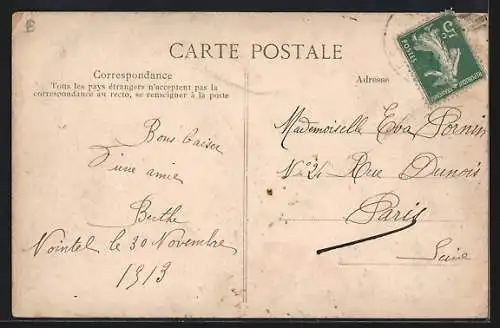 CARTE POSTALE
Correspondance
Tous les pays étrangers n'acceptent pas la
correspondance au recto, se renseigner à la poste
Bons baiser
d'une amie
Berthe
Nointel le 30 Novembre
1913
Adresse
Mademoiselle Eva
N° 24 Rue Dunois
Paris
Seine
5 c.
POSTES